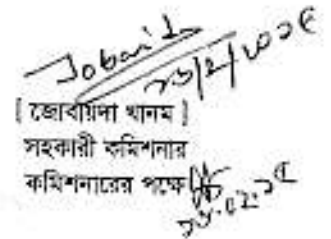 Jobaida
২৩/২/২০১৫
[ জোবায়দা খানম ]
সহকারী কমিশনার
কমিশনারের পক্ষে
২৩.০২.১৫